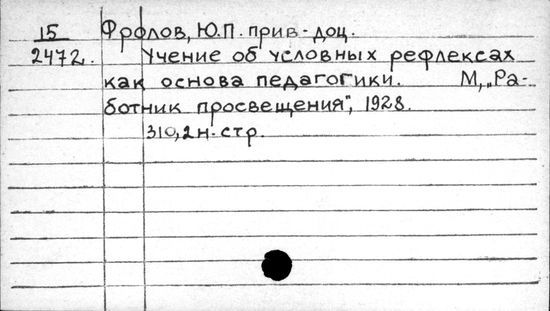 15 Фролов, Ю.П. прив-доц.
2472. Учение об условных рефлексах
как основа педагогики. М, „Ра-
ботник просвещения", 1928.
310, 2 н. стр.